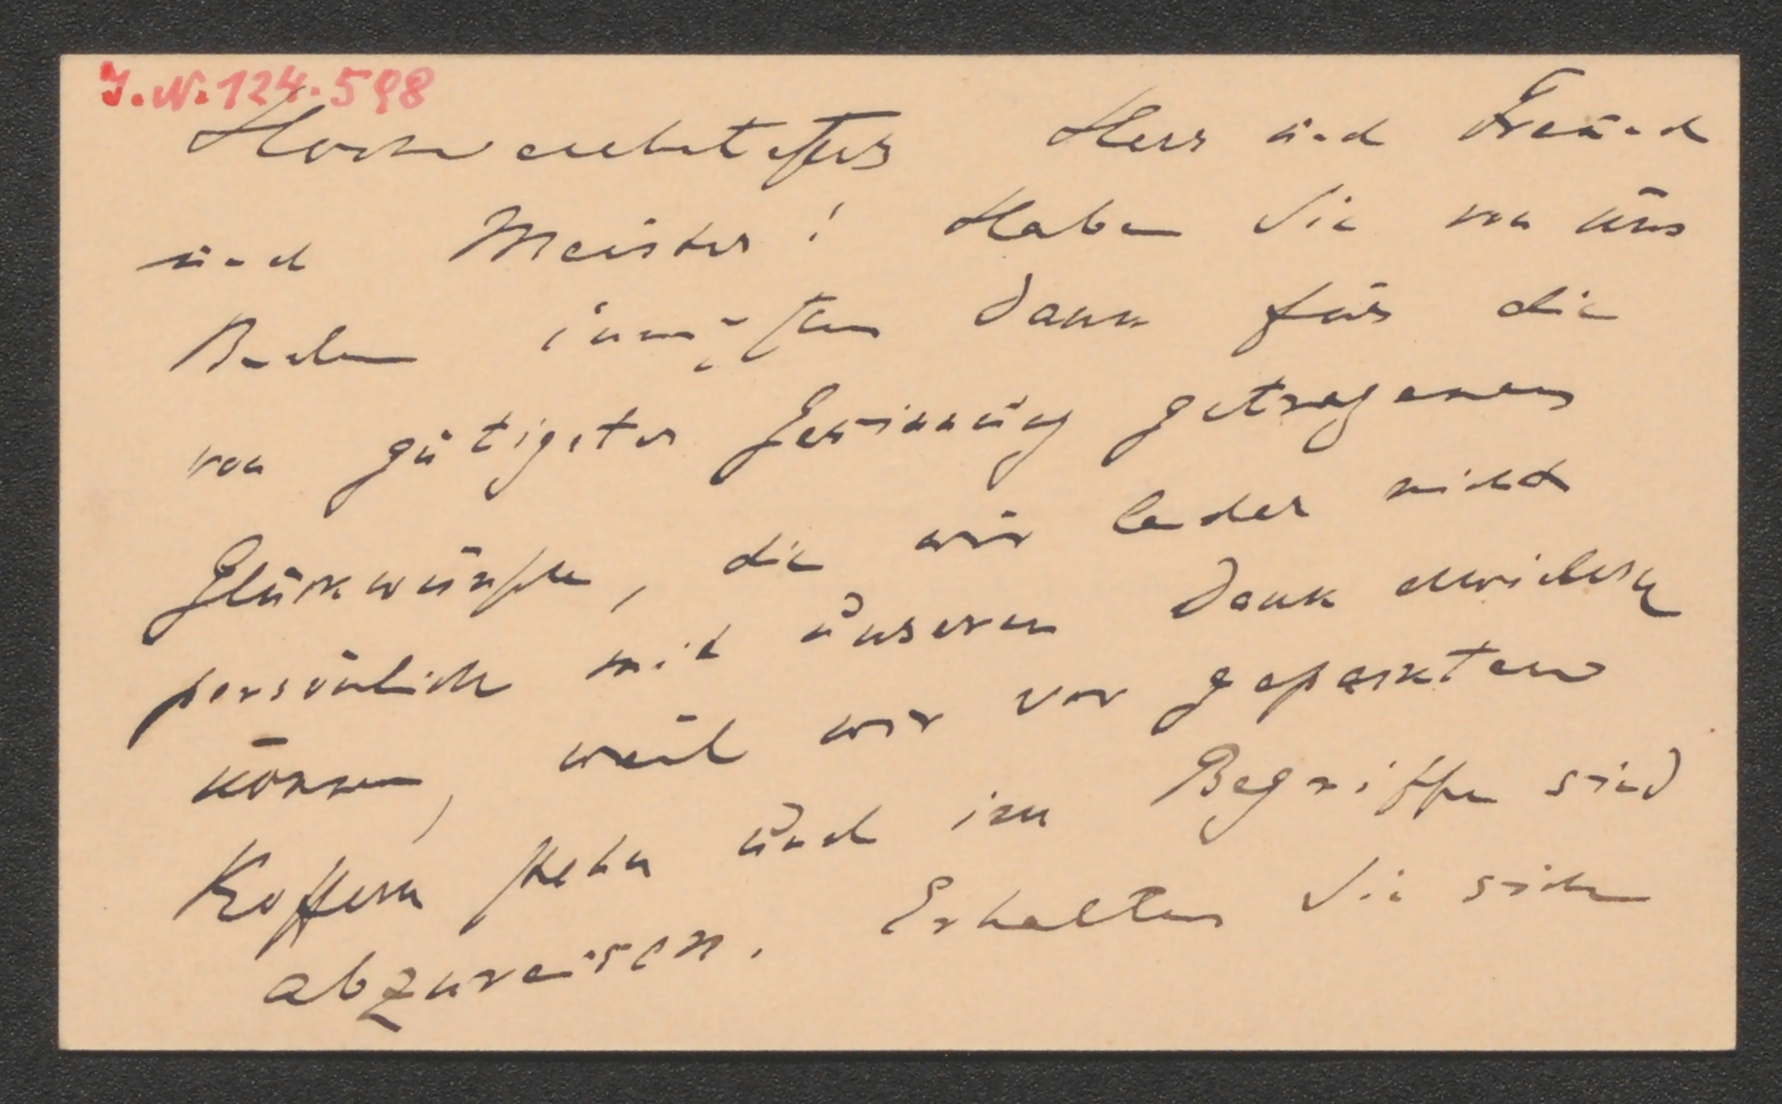 I.N. 124.598
Hochverehrtester Herr und Freund
und Meister! Haben Sie von uns
Beiden innigsten Dank für die
von gütigster Gesinnung getragenen
Glückwünsche, die wir leider nicht
persönlich mit unserem Dank erwidern
können, weil wir vor gepackten
Koffern stehn und im Begriffe sind
abzureisen. Erhalten Sie sich